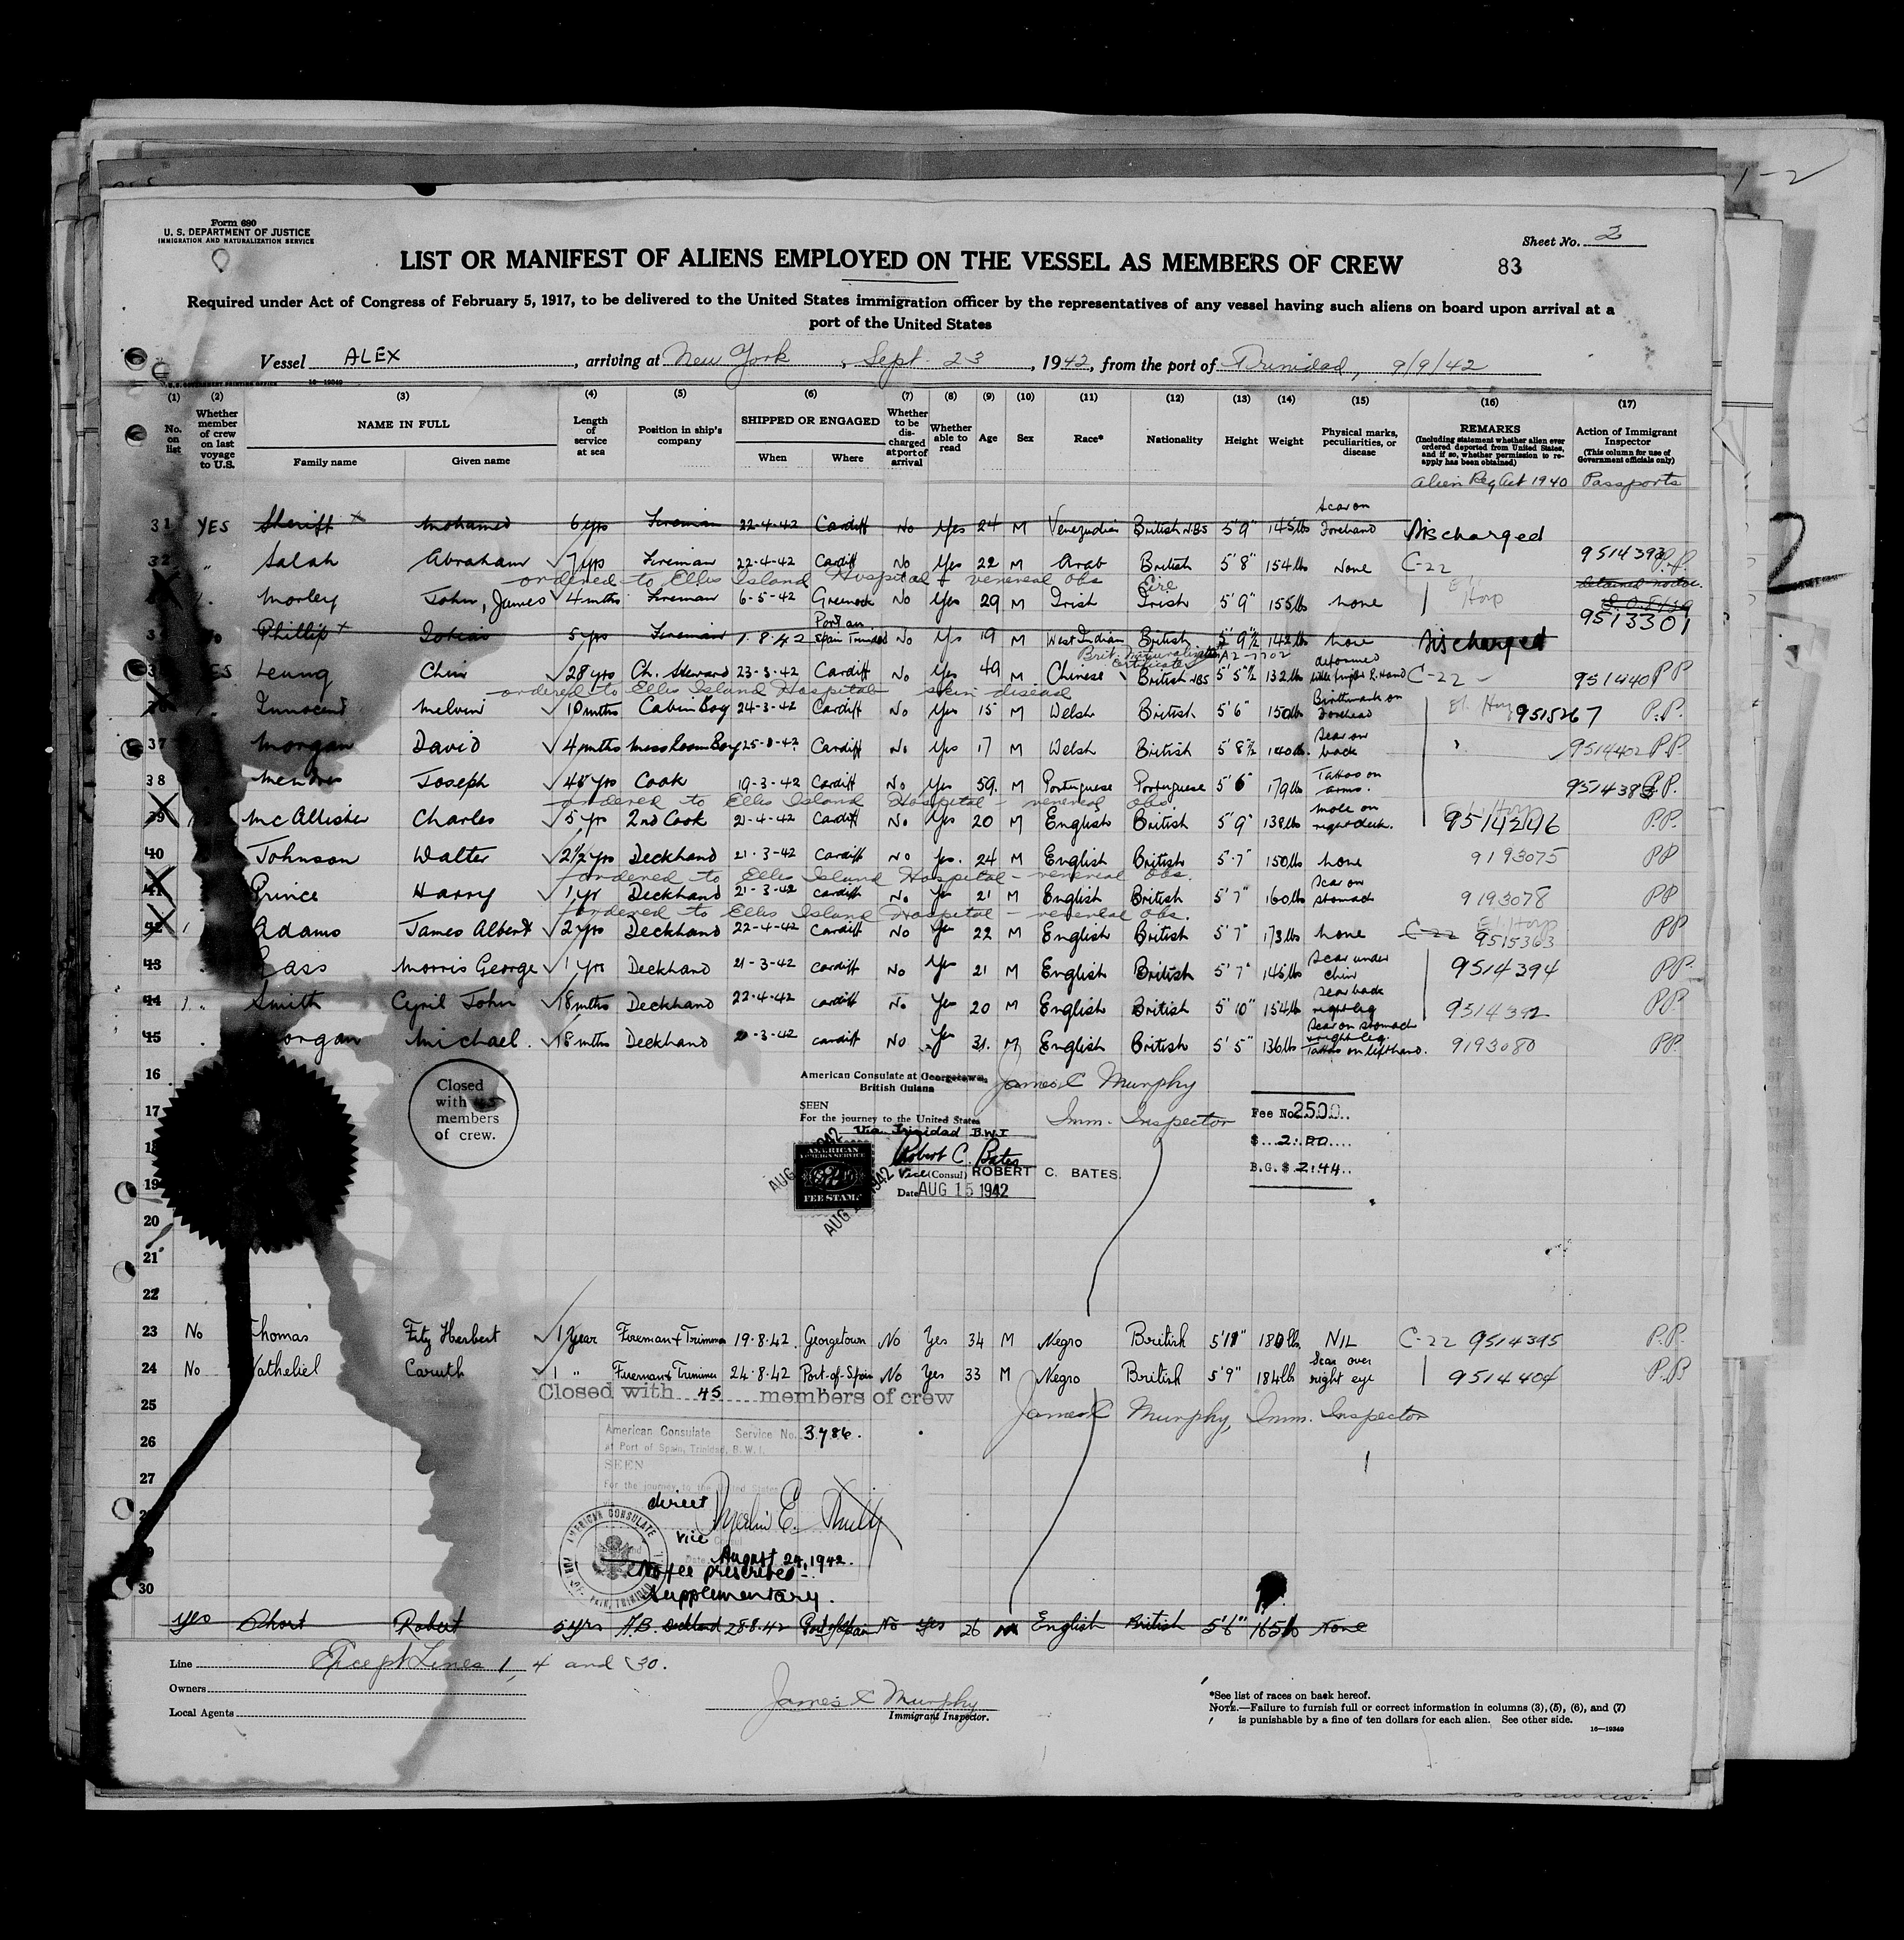 Form 680
U. S. DEPARTMENT OF JUSTICE
IMMIGRATION AND NATURALIZATION SERVICE
Sheet No. 2
LIST OR MANIFEST OF ALIENS EMPLOYED ON THE VESSEL AS MEMBERS OF CREW
83
Required under Act of Congress of February 5, 1917, to be delivered to the United States immigration officer by the representatives of any vessel having such aliens on board upon arrival at a
port of the United States
Vessel ALEX, arriving at New York, Sept. 23, 1942, from the port of Trinidad, 9/9/42
U. S. GOVERNMENT PRINTING OFFICE 16—19349
(1) No. on list
(2) Whether member of crew on last voyage to U.S.
(3) NAME IN FULL Family name Given name
(4) Length of service at sea
(5) Position in ship's company
(6) SHIPPED OR ENGAGED When Where
(7) Whether to be discharged at port of arrival
(8) Whether able to read
(9) Age
(10) Sex
(11) Race*
(12) Nationality
(13) Height
(14) Weight
(15) Physical marks, peculiarities, or disease
(16) REMARKS (Including statement whether alien ever ordered deported from United States, and if so, whether permission to reapply has been obtained)
(17) Action of Immigrant Inspector (This column for use of Government officials only)
Alien Reg Act 1940 Passports
31 YES Sheriff x Mohamed 6 yrs Fireman 22-4-42 Cardiff No Yes 24 M British 5'9" 145 lbs Scar on Forehand Discharged
32 " Salah Abraham 7 yrs Fireman 22-4-42 Cardiff No Yes 22 M Arab British 5'8" 154 lbs None C-22 P.P.
ordered to Ellis Island Hospital venereal obs
Morley John, James 4 mths Fireman 6-5-42 Greenock No Yes 29 M Irish Eire Irish 5'9" 155 lbs None 9513301
Phillip x 5 yrs Fireman 1.8.42 Port an Spain Trinidad No Yes 19 M West Indian British 5'9½ 142 lbs None Discharged
Leung Chin 28 yrs Ch. Steward 23-3-42 Cardiff No Yes 49 M Chinese British 5'5½ 132 lbs deformed R. Hand C-22 P P
ordered to Ellis Island Hospital skin disease
Innocent Melvin 10 mths Cabin Boy 24-3-42 Cardiff No Yes 15 M Welsh British 5'6" 150 lbs Birthmark on Forehead 9515267 P.P.
37 Morgan David 4 mths Mess Room Boy Cardiff No Yes 17 M Welsh British 5'8½ 140 lb. Scar on back 9514402 P P
38 Joseph 45 yrs Cook 19-3-42 Cardiff No Yes 59. M Portuguese Portuguese 5'6" 179 lbs Tattoo on arms. P.P.
ordered to Ellis Island Hospital - venereal obs.
39 McAllister Charles 5 yrs 2nd Cook 21-4-42 Cardiff No Yes 20 M English British 5'9" 138 lbs mole on right cheek. P.P.
40 Johnson Walter 2½ yrs Deckhand 21-3-42 Cardiff No Yes. 24 M English British 5'7" 150 lbs None 9193075 P P
ordered to Ellis Island Hospital - venereal obs.
41 Prince Harry 1 yr Deckhand 21-3-42 Cardiff No Yes 21 M English British 5'7" 160 lbs Scar on stomach 9193078 P P
ordered to Ellis Island Hospital - venereal obs.
42 Adams James Albert 2 yrs Deckhand 22-4-42 Cardiff No Yes 22 M English British 5'7" 173 lbs None C-22 9515363 P P
43 Morris George 1 yrs Deckhand 21-3-42 Cardiff No Yes 21 M English British 5'7" 145 lbs Scar under chin 9514394 P P.
44 Smith Cyril John 18 mths Deckhand 22.4.42 Cardiff No Yes 20 M English British 5'10" 154 lb Scar back right leg 9514392 P.P.
45 Michael. 18 mths Deckhand Cardiff No Yes 31. M English British 5'5" 136 lbs Scar on stomach right leg. Tattoo on left hand. 9193080 P.P.
16
Closed with 45 members of crew.
American Consulate at Georgetown, British Guiana
James C Murphy
Imm. Inspector
17
SEEN
For the journey to the United States
Via Trinidad B.W.I
Robert C. Bates
Vice (Consul) ROBERT C. BATES.
Date AUG 15 1942
AMERICAN FOREIGN SERVICE
FEE STAMP
Fee No. 2500
$ 2.00
B.G. $ 2.44
18
19
20
21
22
23 No Thomas Fitz Herbert 1 Year Fireman & Trimmer 19.8.42. Georgetown No Yes 34 M Negro British 180 lbs NIL C-22 9514395 P.P.
24 No Natheliel Caruth 1 " Fireman & Trimmer 24.8.42 Port-of-Spain No Yes 33 M Negro British 5'9" 184 lb Scar over right eye 9514404 P.P
Closed with 45 members of crew
25
James C Murphy, Imm. Inspector
26
American Consulate Service No. 3786.
at Port of Spain, Trinidad, B. W. I.
SEEN
27
For the journey to the United States
direct
vice Consul
Date August 24, 1942.
AMERICAN CONSULATE
No fee prescribed
Supplementary.
30
Yes Short Robert 5 yrs A.B. Deckhand 28.8.42 Port of Spain No Yes 26 M English British 5'6" 165 lb None
Line Except Lines 1, 4 and 30.
Owners
Local Agents
James C Murphy
Immigrant Inspector.
*See list of races on back hereof.
NOTE.—Failure to furnish full or correct information in columns (3), (5), (6), and (7)
is punishable by a fine of ten dollars for each alien. See other side.
16—19349